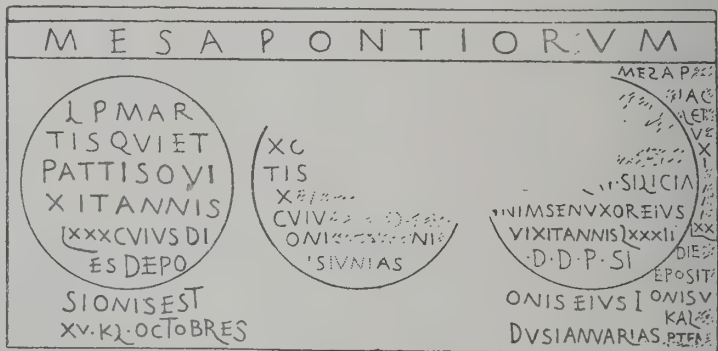 MESA PONTIORVM
L P MAR
TISQVIET
PATTISOVI
XITANNIS
LXXXCVIVS DI
ES DEPO
SIONISEST
XV·KL·OCTOBRES
XC
TIS
X
CVIV
ONI NI
SIVNIAS
SILICIA
NIMSENVXOREIVS
VIXITANNIS LXXXII
·D·D·P·SI
ONIS EIVS I
DVSIANVARIAS
MEZAP
IAC
LET
VE
X
I
XX
DIE
EPOSIT
ONISV
KAL